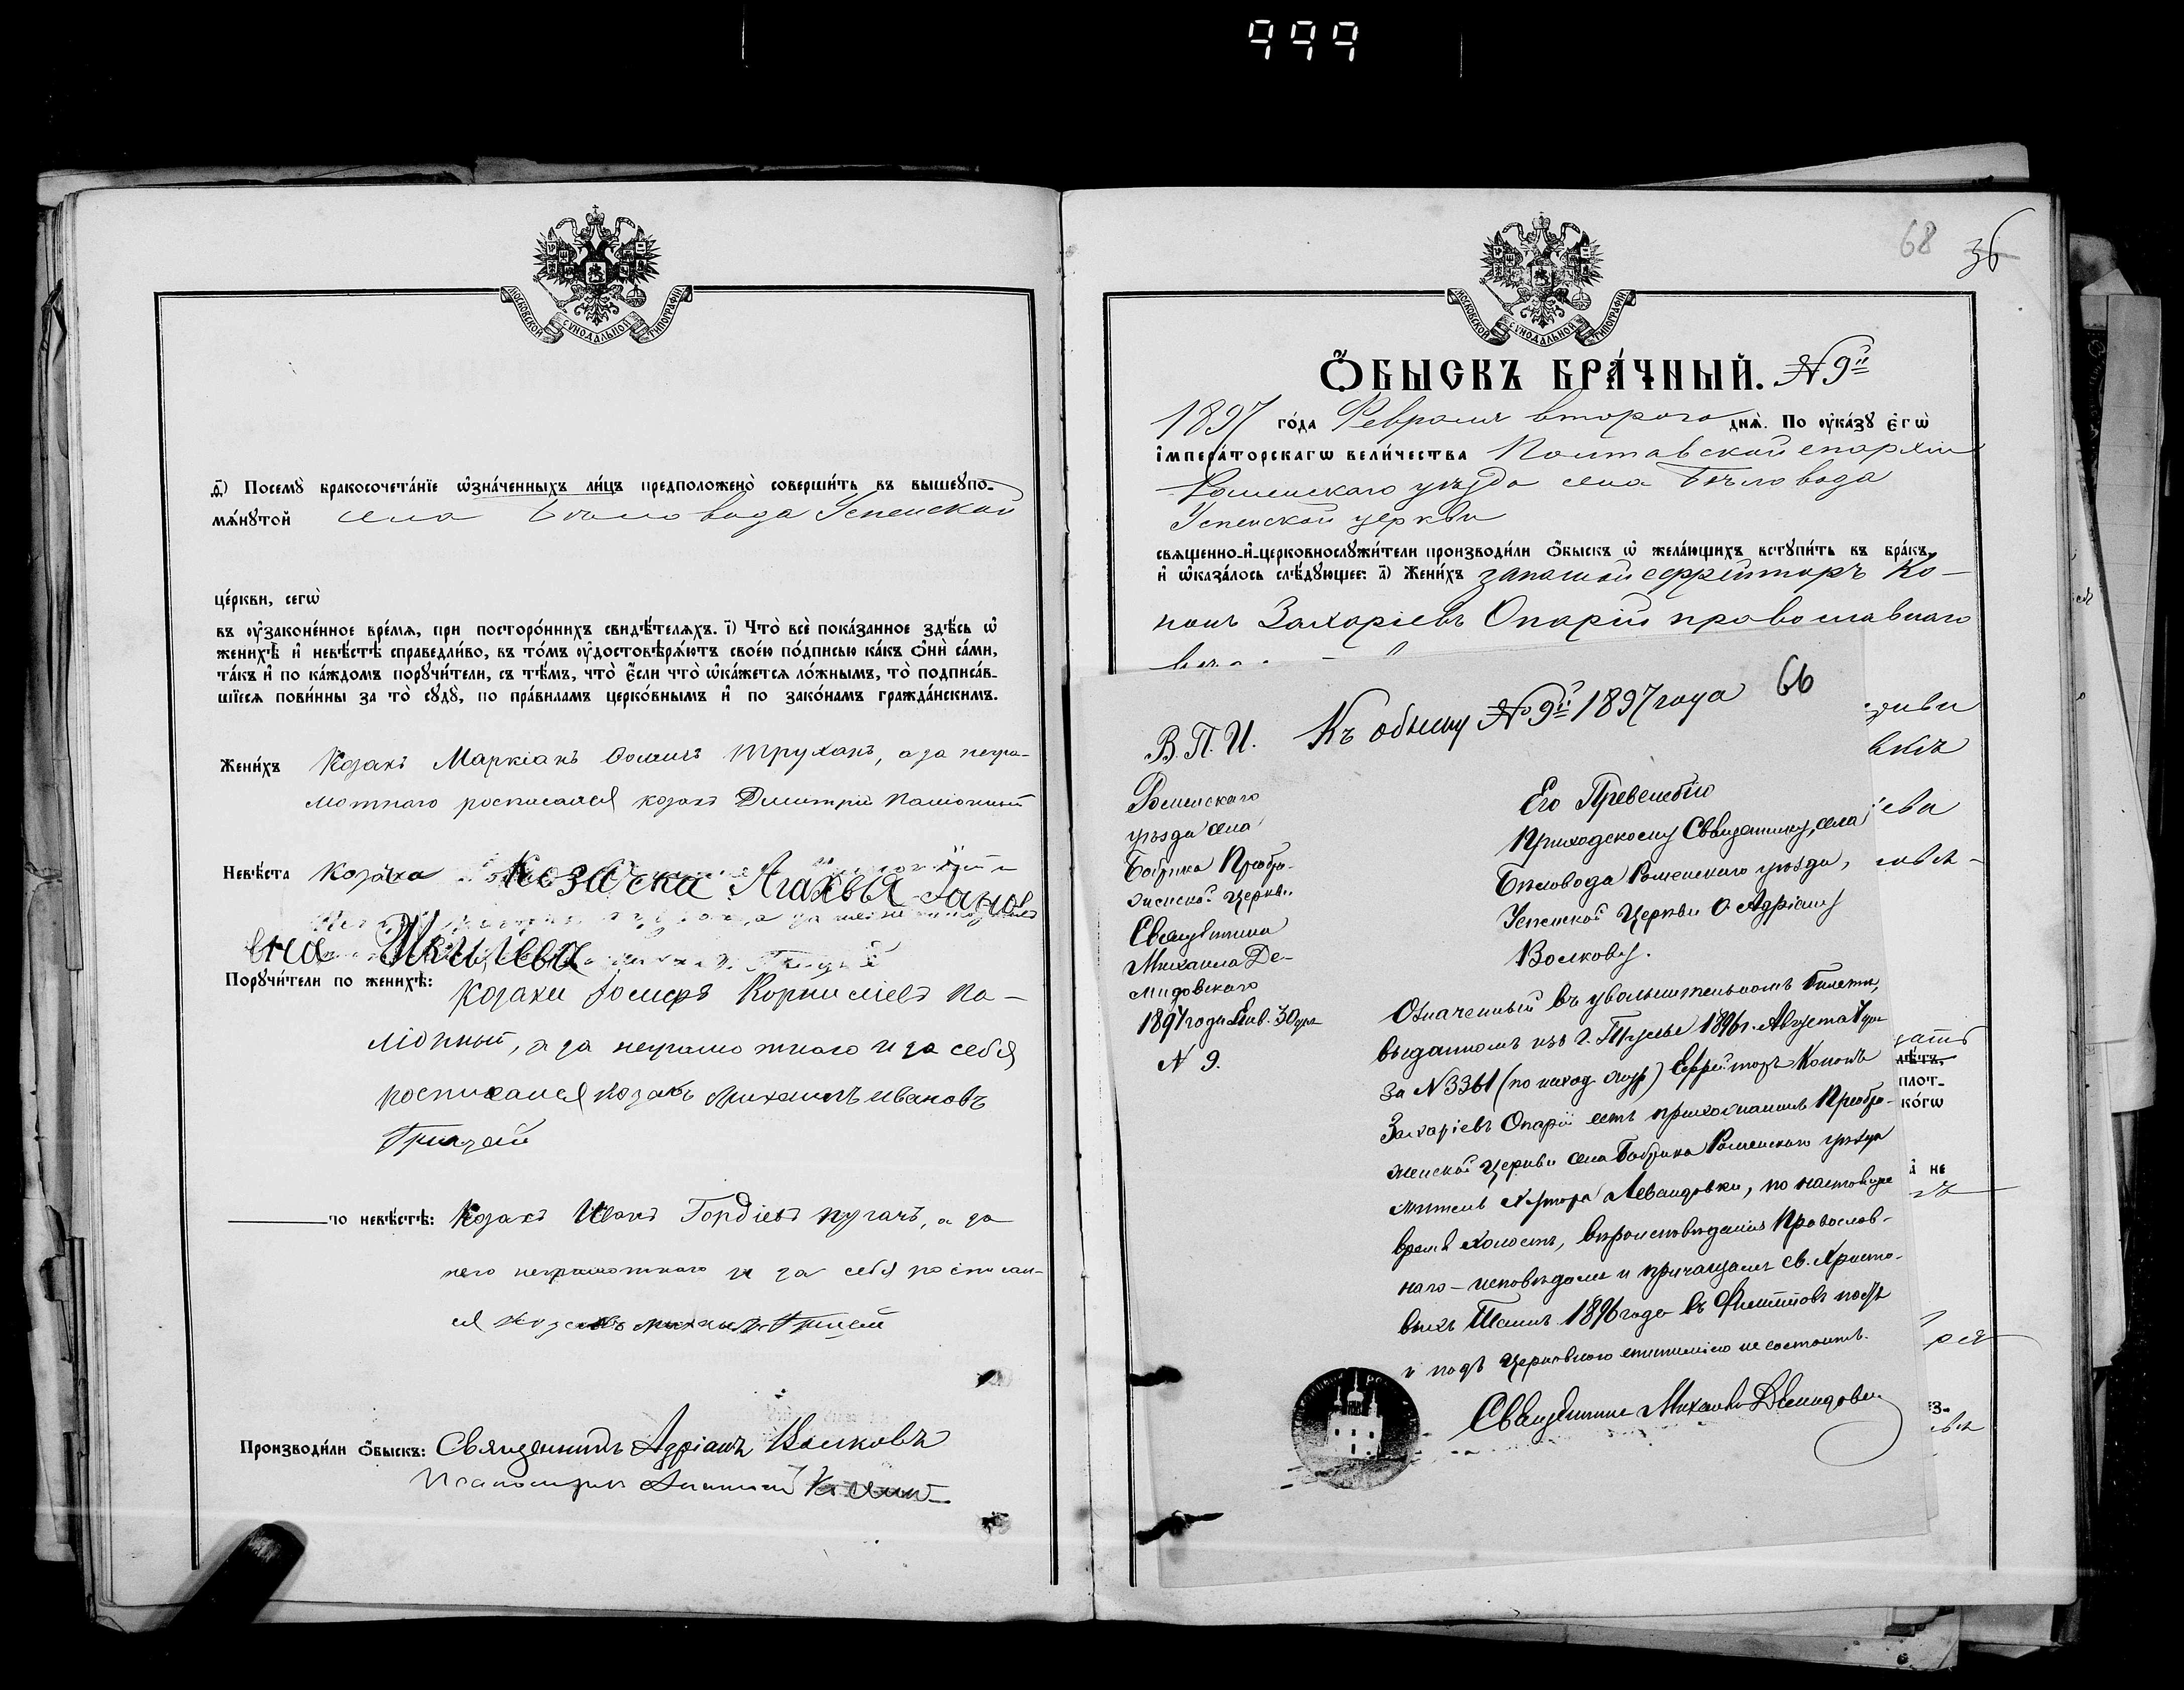 999
МОСКОВСКОЙ СѴНОДАЛЬНОЙ ТИПОГРАФІИ
ѳ҃) Посемꙋ̀ бракосочета́нїе ѡ҆зна́ченныхъ ли́цъ предположено̀ соверши́ть въ вышеꙋпо-
мѧ́нꙋтой села Бѣловода Успенской
це́ркви, сегѡ̀
въ ꙋ҆законе́нное вре́мѧ, при посторо́ннихъ свидѣ́телѧхъ. і҃) Что̀ всѐ пока́занное здѣ́сь ѡ҆
женихѣ̀ и҆ невѣ́стѣ справедли́во, въ то́мъ ꙋ҆достовѣрѧ́ютъ свое́ю по́дписью ка́къ ѻ҆нѝ са́ми,
та́къ и҆ по ка́ждомъ порꙋчи́тели, съ тѣ́мъ, что̀ є҆́сли что̀ ѡ҆ка́жетсѧ ло́жнымъ, то̀ подписа́в-
шїесѧ пови́нны за то̀ сꙋдꙋ̀, по пра́виламъ церко́внымъ и҆ по зако́намъ гражда́нскимъ.
Жени́хъ Козакъ Маркіанъ Трухонъ, а за негра-
мотнаго росписался козакъ Дмитрій
Невѣ́ста Козачка Козачка Агафья Ганов
ена Шкилева
Порꙋчи́тели по женихѣ̀: Козаки Корниліевъ По-
ліонный, а за неграмотнаго и за себя
росписался козакъ Михаилъ Ивановъ
Грицай
по невѣ́стѣ: Козакъ Иванъ Гордіевъ Пугачъ, а за
него неграмотнаго и за себя росписал-
ся козакъ Грицай
Производи́ли ѻ҆́быскъ: Священникъ Адріанъ Волковъ
Псаломщикъ
68 36
МОСКОВСКОЙ СѴНОДАЛЬНОЙ ТИПОГРАФІИ
Ѻ҆́БЫСКЪ БРА́ЧНЫЙ. № 9й
1897 го́да Февраля второго днѧ̀. По ᲂу҆ка́зꙋ є҆гѡ̀
і҆мпера́торскагѡ вели́чества Полтавской епархіи
Роменскаго уѣзда села Бѣловода
Успенской церкви
свѧще́нно-и҆-церковнослꙋжи́тели производи́ли ѻ҆́быскъ ѡ҆ жела́ющихъ встꙋпи́ть въ бра́къ,
и҆ ѡ҆каза́лось слѣ́дꙋющее: а҃) Жени́хъ запасной ефрейторъ Ко-
нонъ Захаріевъ Опарій православнаго
66
В. П. И. Къ обыску № 9й 1897 года
Роменскаго
уѣзда села
Бобрика Преобра-
женской Церкви
Священника
Михаила Де-
мидовскаго
1897 года Янв. 30 дня
№ 9.
Его Превелебію
Приходскому Священнику, села
Бѣловода Роменскаго уѣзда,
Успенской Церкви О. Адріану
Волкову.
Означенный въ увольнительномъ билетѣ,
выданномъ изъ г. 1896 г. Августа
за № 3361 (по исход. жур) Ефрейторъ Кононъ
Захаріевъ Опарій есть прихожанинъ Преобра-
женской Церкви села Бобрика Роменскаго уѣзда
житель хутора Левандовки, по настоящее
время холостъ, вѣроисповѣданія Православ-
наго – исповѣдался и причащался св. Христо-
выхъ Таинъ 1896 года въ Филипповъ постъ
и подъ Церковною епитиміею не состоитъ.
Священникъ Михаилъ Демидовск